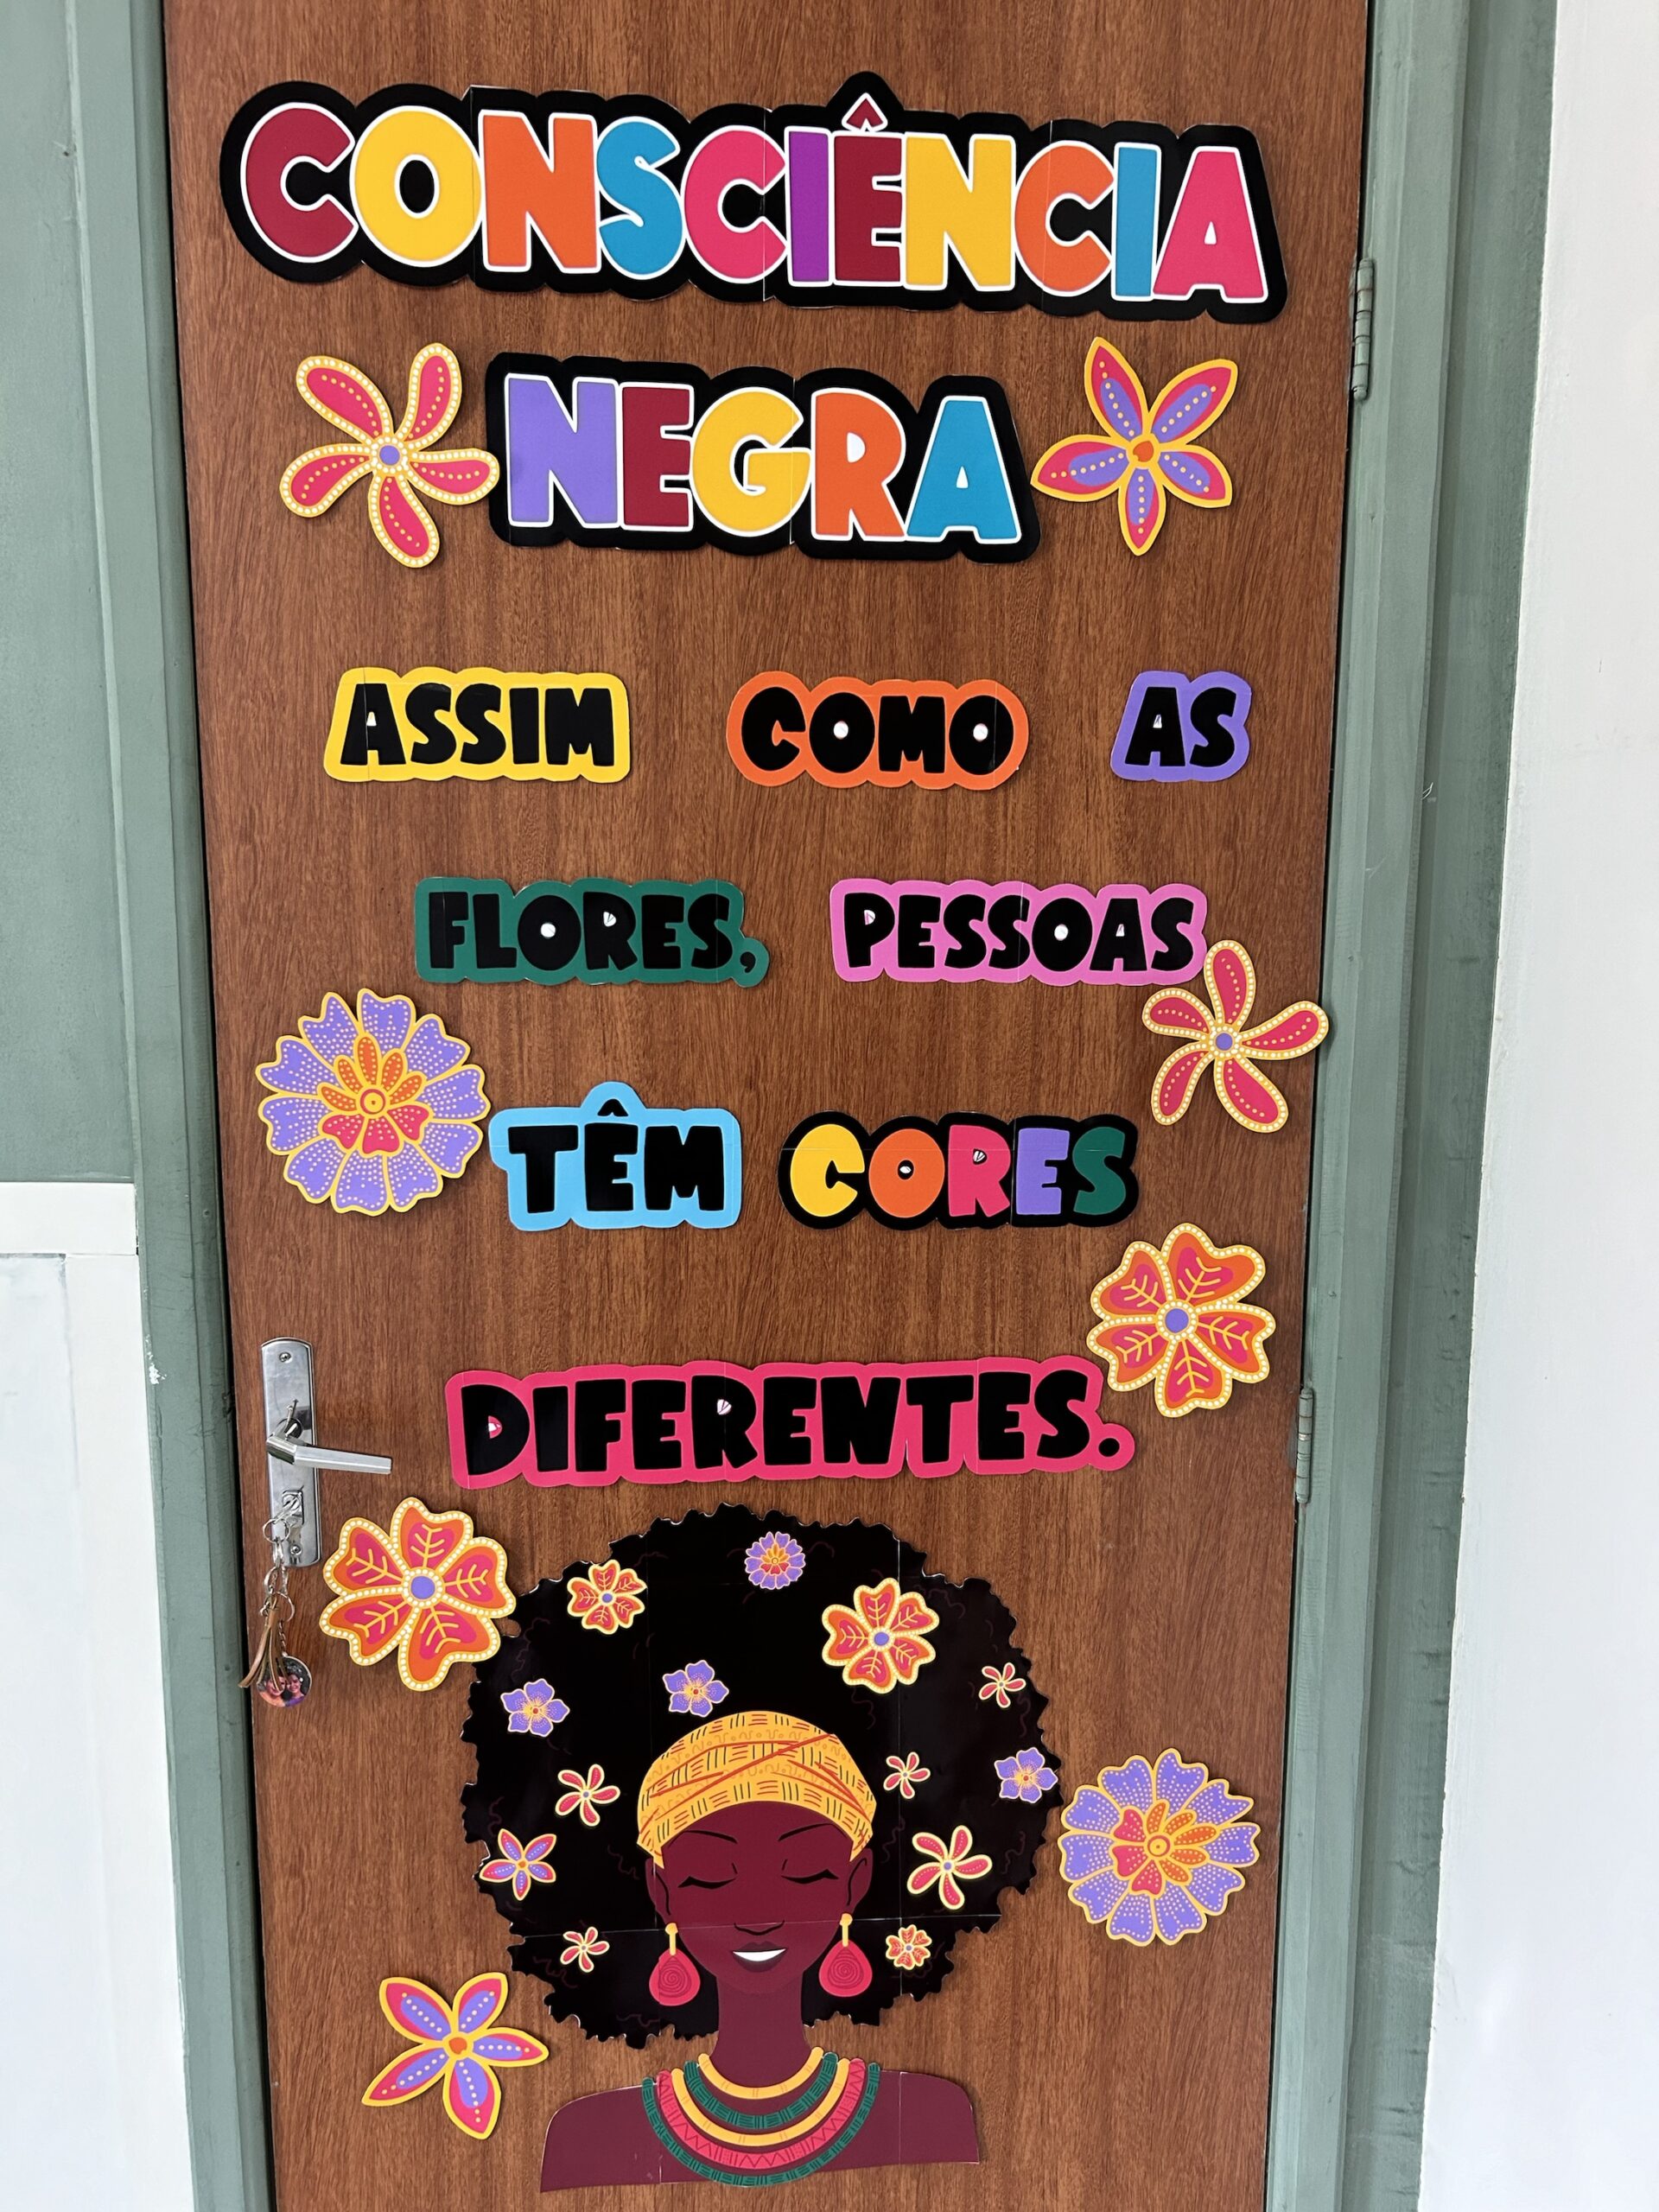 CONSCIÊNCIA
NEGRA
ASSIM COMO AS
FLORES, PESSOAS
TÊM CORES
DIFERENTES.